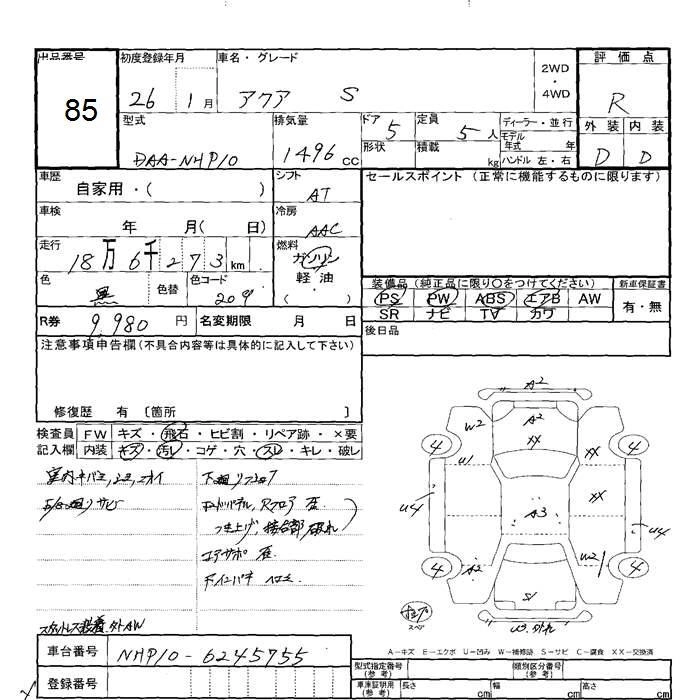 出品番号 初度登録年月 車名・グレード 2WD・4WD 評価点
85 26 1月 アクア S R
型式 排気量 ドア 5 定員 5人 ディーラー・並行 外装 内装
DAA-NHP10 1496cc 形状 積載 kg モデル年式 年 D D
ハンドル 左・右
車歴 自家用・( ) シフト AT セールスポイント (正常に機能するものに限ります)
車検 年 月( 日) 冷房 AAC
走行 18万6千273km 燃料 ガソリン
軽油
( )
色 黒 色替 色コード 209
装備品(純正品に限り○をつけてください) 新車保証書
PS PW ABS エアB AW 有・無
SR ナビ TV カワ
R券 9,980円 名変期限 月 日 後日品
注意事項申告欄(不具合内容等は具体的に記入して下さい)
修復歴 有 〔箇所 〕
検査員 FW キズ・飛石・ヒビ割・リペア跡・×要
記入欄 内装 キズ・汚レ・コゲ・穴・スレ・キレ・破レ
下廻り
サビ
突上げ, 接合部 破れ
コアサポ 歪
A2
W2 A2 XX XX
4 4
U1 XX
U4 A3 U4
4 A2 W2 4
S1
スペア
A-キズ E-エクボ U-凹み W-補修跡 S-サビ C-腐食 XX-交換済
車台番号 NHP10-6245755
登録番号
型式指定番号(参考) 類別区分番号(参考)
車庫証明用(参考) 長さ cm 幅 cm 高さ cm